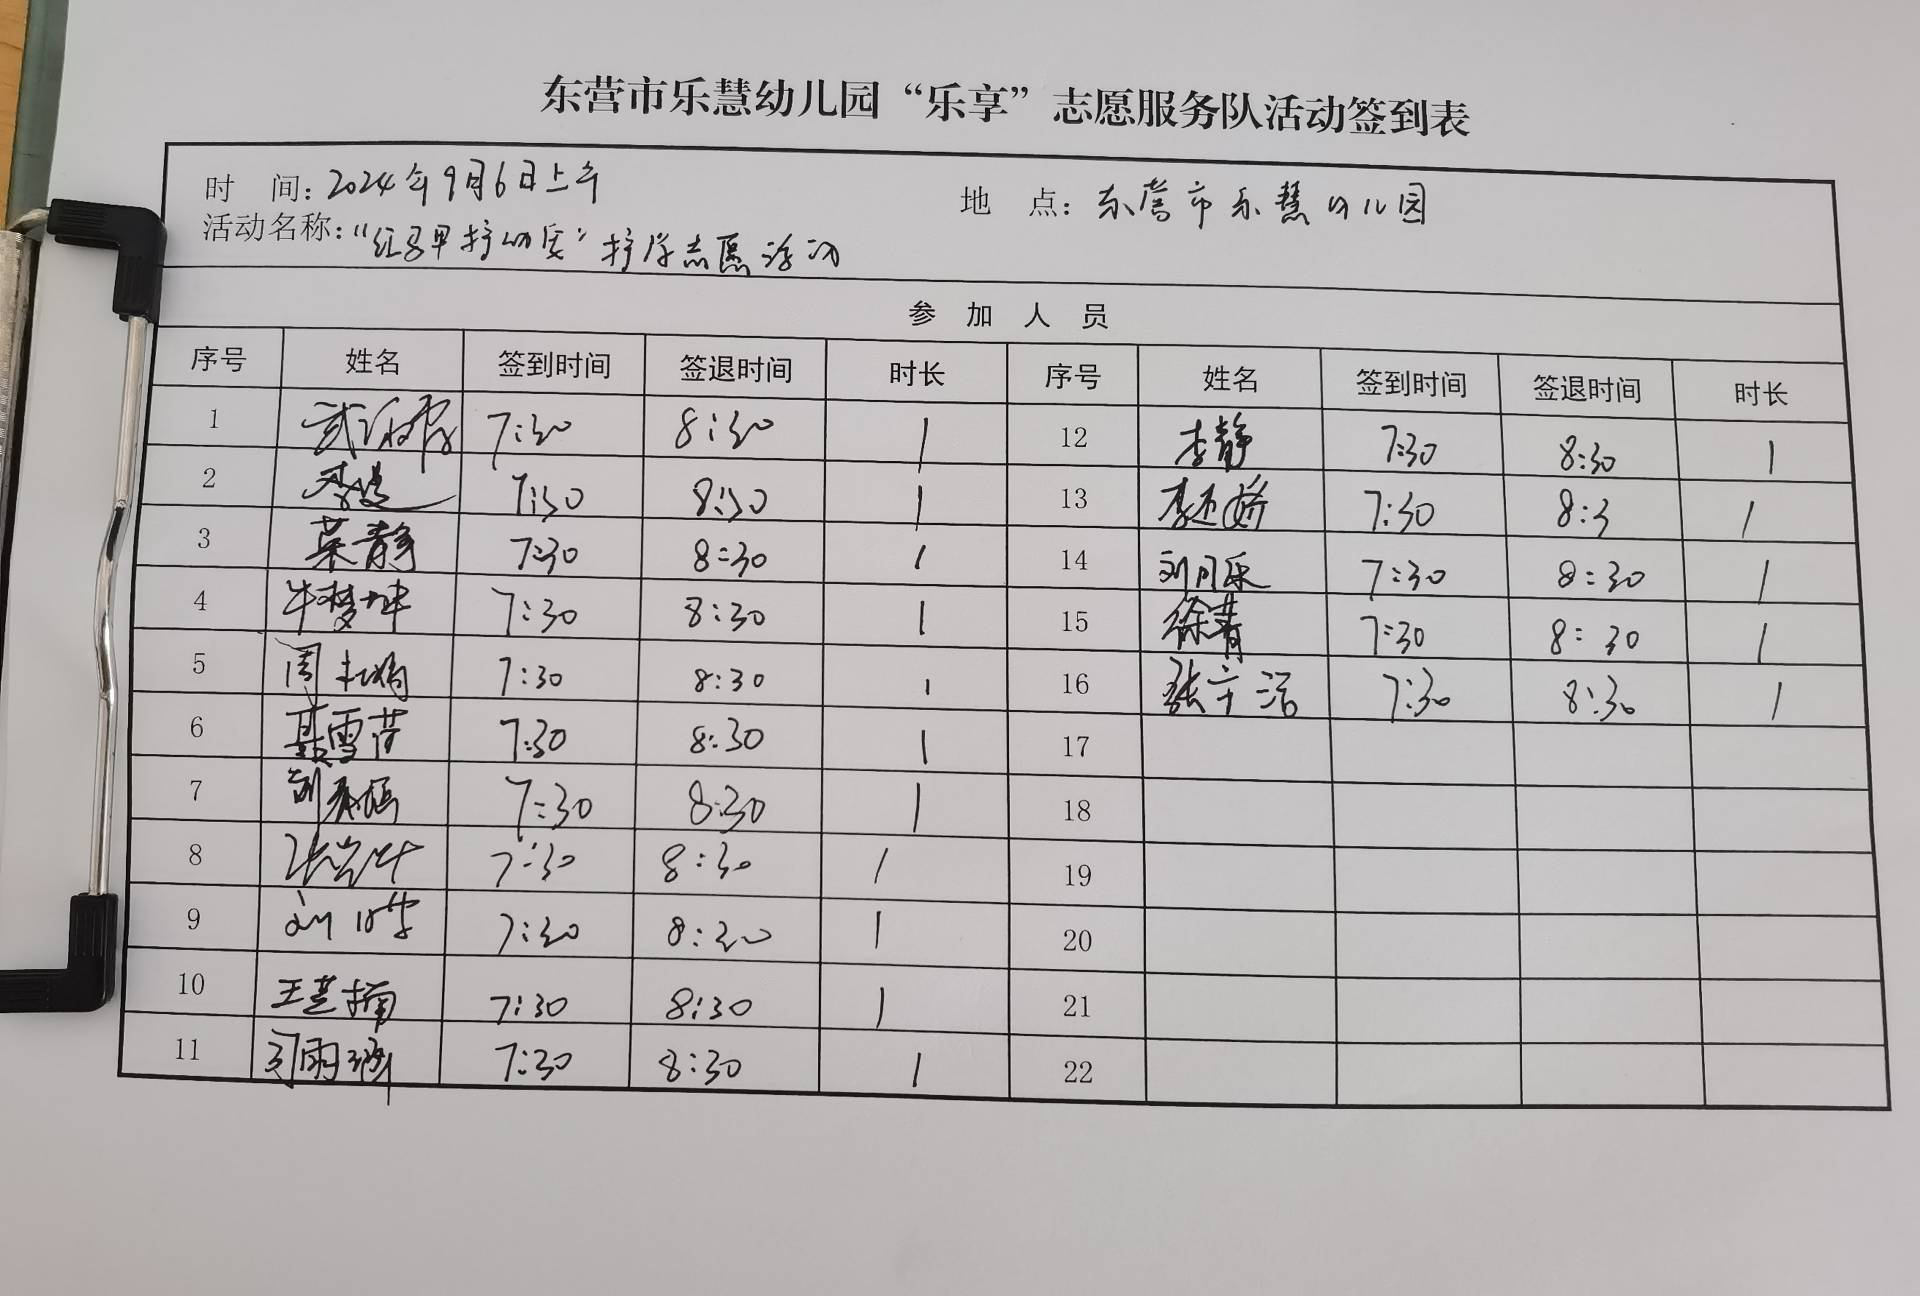 东营市乐慧幼儿园“乐享”志愿服务队活动签到表
时 间: 2024年9月6日上午 地 点: 东营市乐慧幼儿园
活动名称: “红马甲护幼 ” 护学志愿活动
参 加 人 员
序号 姓名 签到时间 签退时间 时长 序号 姓名 签到时间 签退时间 时长
1 7:30 8:30 1 12 李静 7:30 8:30 1
2 7:30 8:30 1 13 李 娇 7:30 8:3 1
3 荣静 7:30 8:30 1 14 刘月乐 7:30 8:30 1
4 牛梦坤 7:30 8:30 1 15 徐青 7:30 8:30 1
5 周 娟 7:30 8:30 1 16 张 洁 7:30 8:30 1
6 聂雪莹 7:30 8:30 1 17
7 7:30 8:30 1 18
8 7:30 8:30 1 19
9 刘 7:30 8:30 1 20
10 王 楠 7:30 8:30 1 21
11 司雨涵 7:30 8:30 1 22